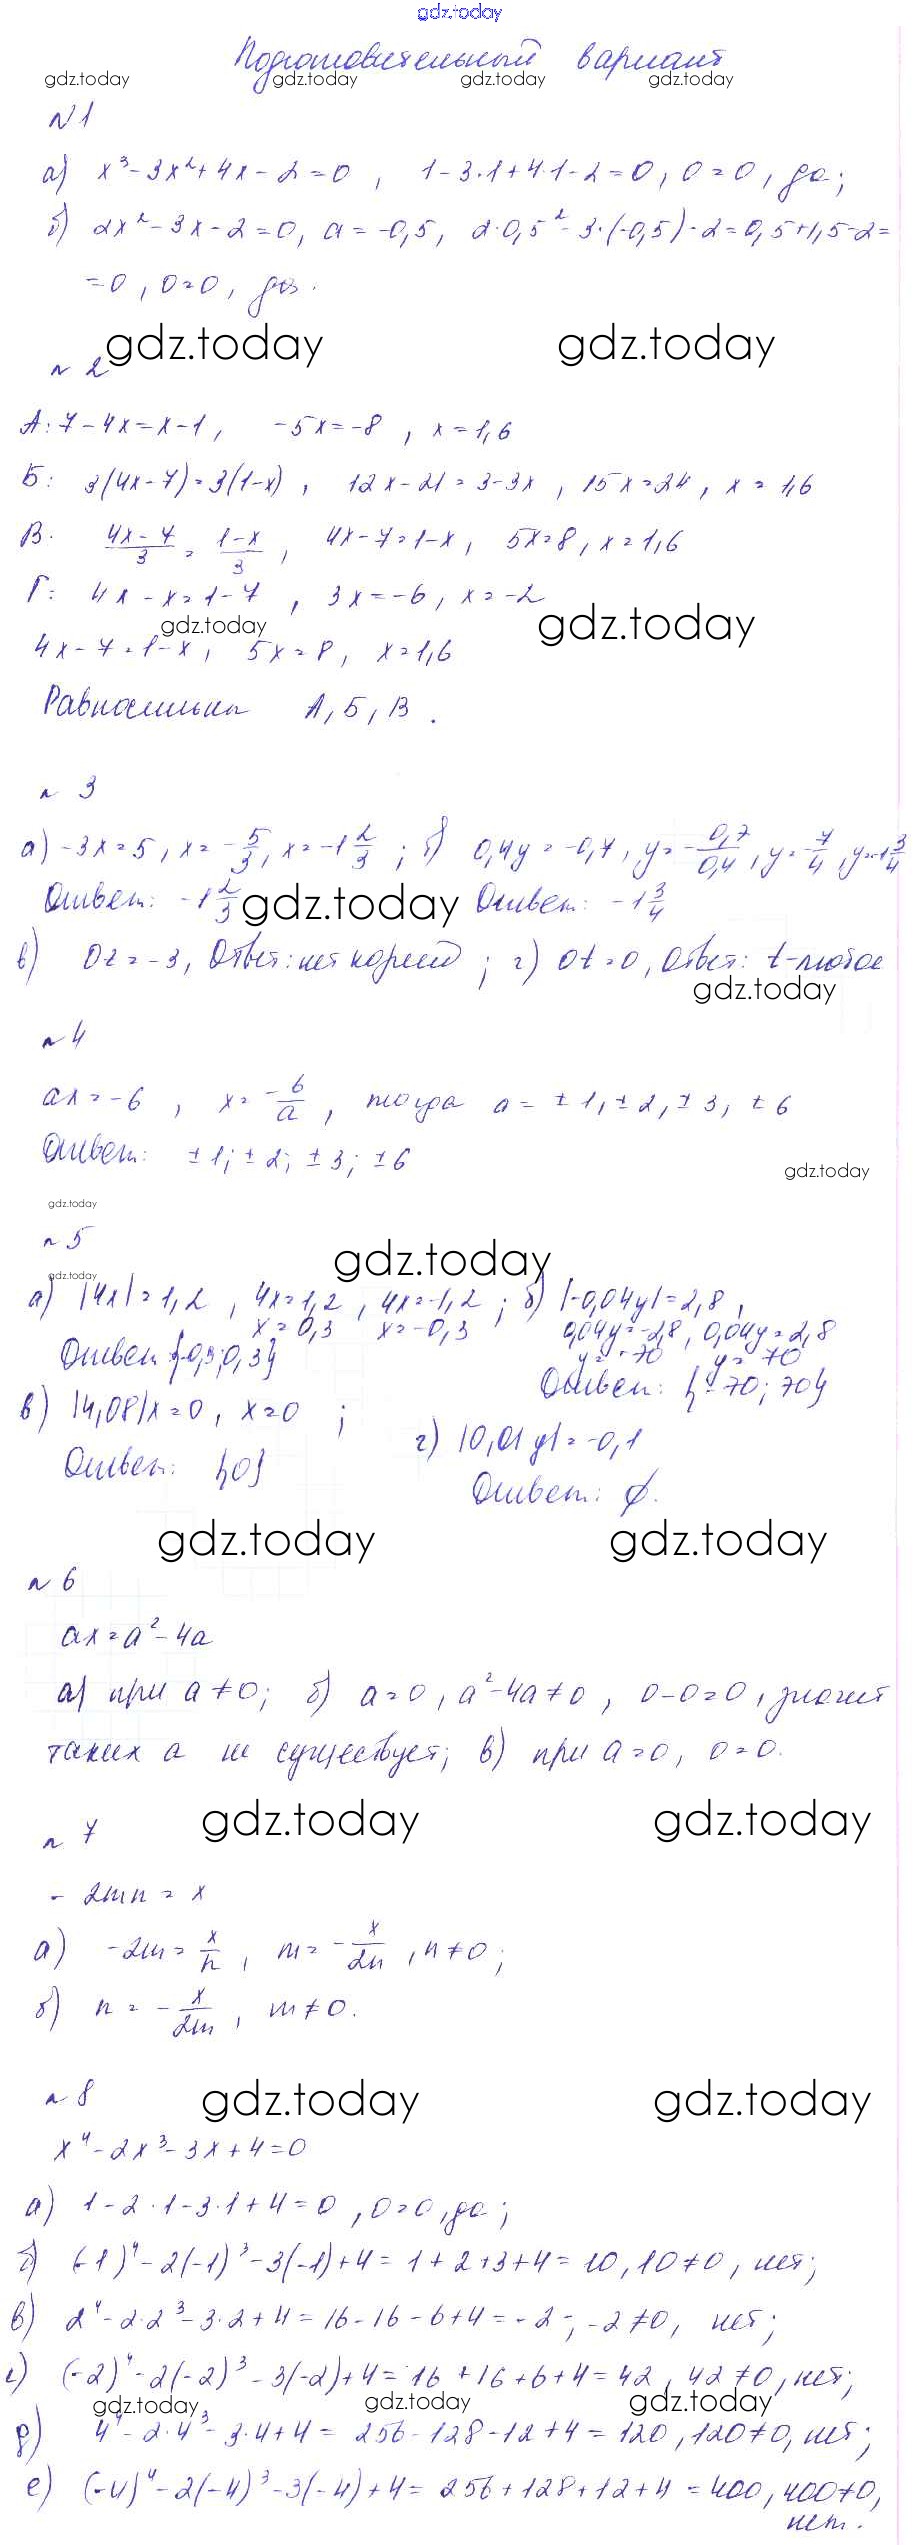 gdz.today
Подготовительный вариант
gdz.today gdz.today gdz.today gdz.today
N1
а) x³-3x²+4x-2=0, 1-3·1+4·1-2=0, 0=0, да;
б) 2x²-3x-2=0, a=-0,5, 2·0,5²-3·(-0,5)-2=0,5+1,5-2=
=0, 0=0, да.
gdz.today gdz.today
n 2
А: 7-4x=x-1, -5x=-8, x=1,6
Б: 3(4x-7)=3(1-x), 12x-21=3-3x, 15x=24, x=1,6
В. (4x-7)/3 = (1-x)/3, 4x-7=1-x, 5x=8, x=1,6
Г: 4x-x=1-7, 3x=-6, x=-2
gdz.today gdz.today
4x-7=1-x, 5x=8, x=1,6
Равносильны А, Б, В.
n 3
а) -3x=5, x=-5/3, x=-1 2/3; б) 0,4y=-0,7, y=-0,7/0,4, y=-7/4, y=-1 3/4
Ответ: -1 2/3 gdz.today Ответ: -1 3/4
в) 0z=-3, Ответ: нет корней; г) 0t=0, Ответ: t-любое
gdz.today
n 4
ax=-6, x=-6/a, тогда a=±1, ±2, ±3, ±6
Ответ: ±1; ±2; ±3; ±6
gdz.today
gdz.today
n 5
gdz.today
gdz.today
а) |4x|=1,2, 4x=1,2, 4x=-1,2; б) |-0,04y|=2,8,
x=0,3 x=-0,3 0,04y=-2,8, 0,04y=2,8
Ответ: {-0,3; 0,3} y=-70 y=70
Ответ: {-70; 70}
в) |4,08|x=0, x=0;
г) |0,01y|=-0,1
Ответ: {0}
Ответ: ∅.
gdz.today gdz.today
n 6
ax=a²-4a
а) при a≠0; б) a=0, a²-4a≠0, 0-0=0, значит
таких a не существует; в) при a=0, 0=0.
gdz.today gdz.today
n 7
-2mn=x
а) -2m=x/n, m=-x/2n, n≠0;
б) n=-x/2m, m≠0.
n 8 gdz.today gdz.today
x⁴-2x³-3x+4=0
а) 1-2·1-3·1+4=0, 0=0, да;
б) (-1)⁴-2(-1)³-3(-1)+4=1+2+3+4=10, 10≠0, нет;
в) 2⁴-2·2³-3·2+4=16-16-6+4=-2; -2≠0, нет;
г) (-2)⁴-2(-2)³-3(-2)+4=16+16+6+4=42, 42≠0, нет;
gdz.today gdz.today gdz.today
д) 4⁴-2·4³-3·4+4=256-128-12+4=120, 120≠0, нет;
е) (-4)⁴-2(-4)³-3(-4)+4=256+128+12+4=400, 400≠0,
нет.